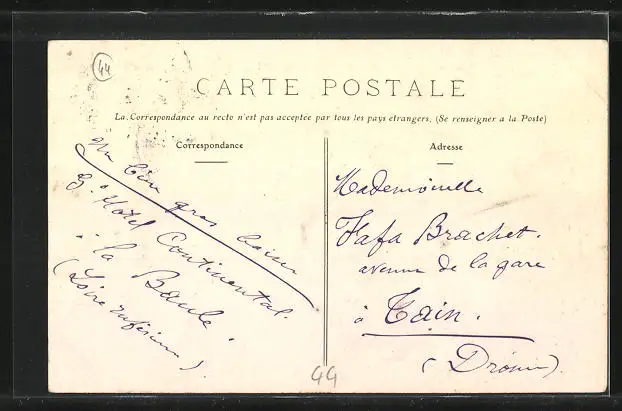 44
CARTE POSTALE
La Correspondance au recto n'est pas acceptée par tous les pays etrangers. (Se renseigner a la Poste)
Correspondance
un bien gros baiser
Gd Hotel Continental.
à la Baule.
(Loire Inférieure).
Adresse
Mademoiselle
Fafa Brachet.
avenue de la gare
à Tain.
(Drôme).
44